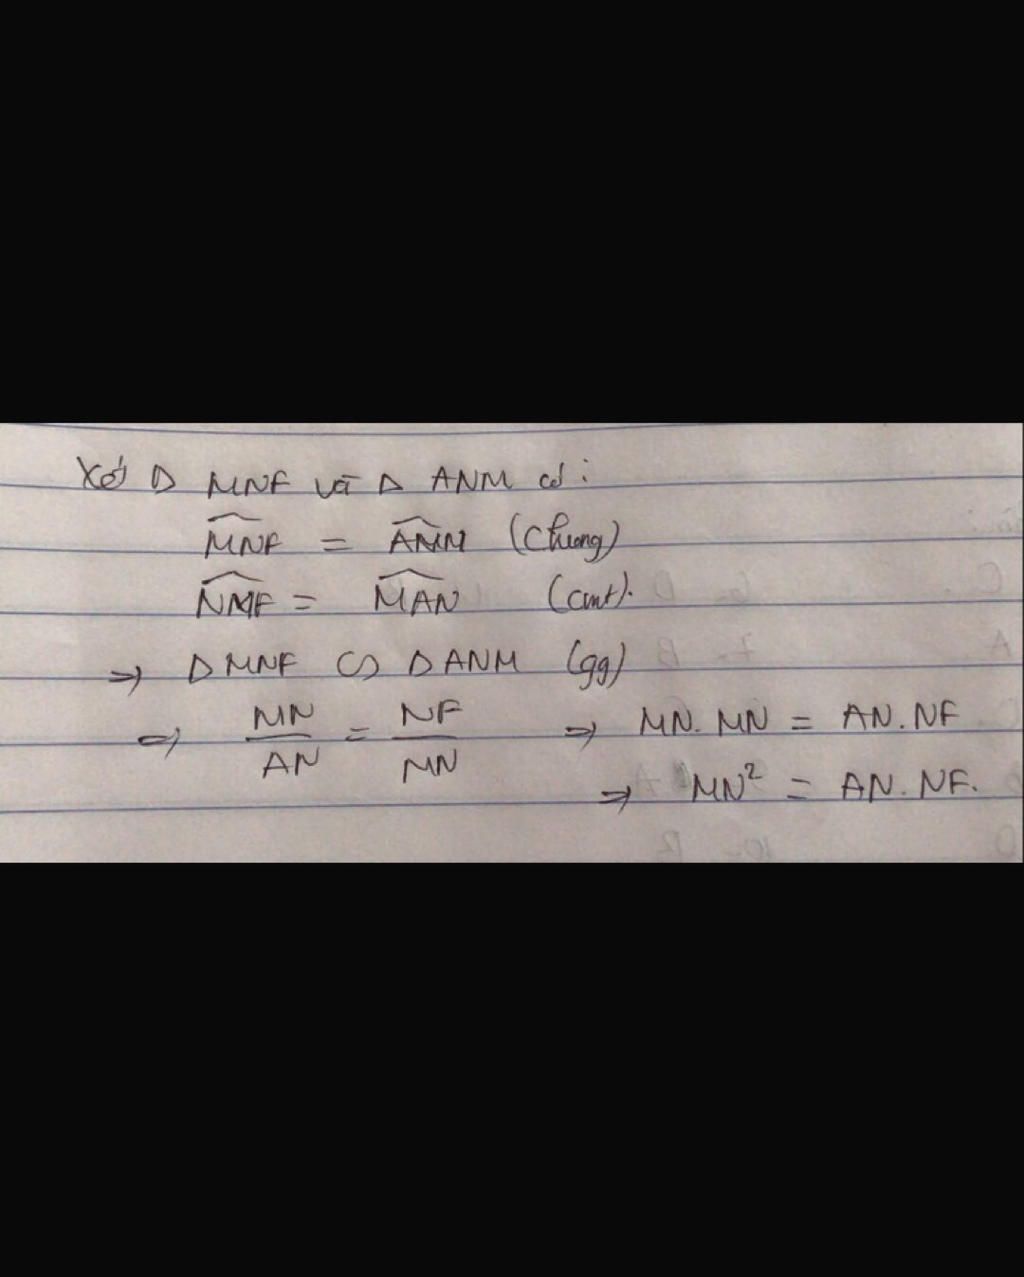 Xét Δ MNF và Δ ANM có:
$\widehat{MNF}$ = $\widehat{ANM}$ (Chung)
$\widehat{NMF}$ = $\widehat{MAN}$ (cmt).
⇒ Δ MNF ∽ Δ ANM (gg)
⇒ $\frac{MN}{AN}$ = $\frac{NF}{MN}$ ⇒ MN. MN = AN. NF
⇒ MN² = AN. NF.